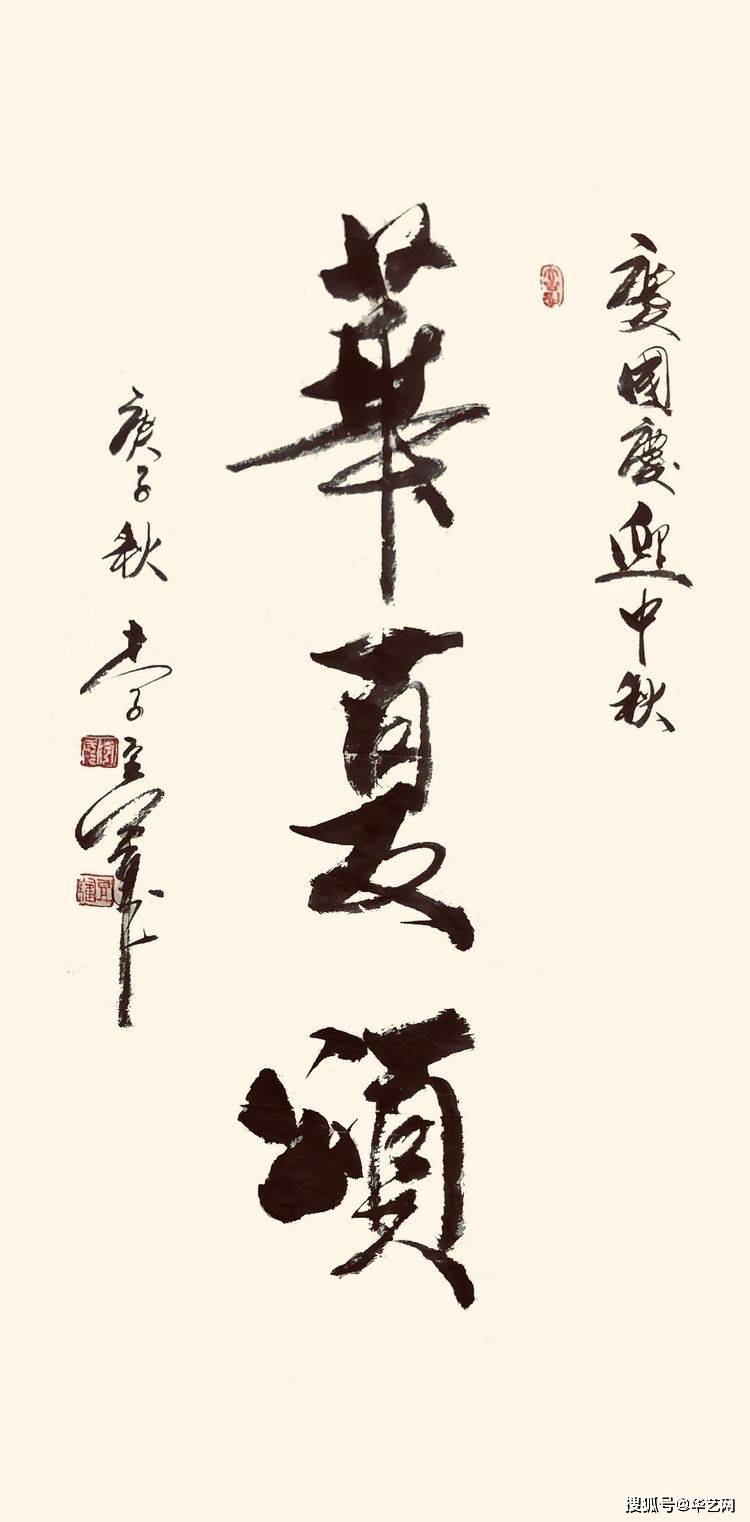 慶國慶迎中秋
華夏頌
庚子秋 李
搜狐号@华艺网